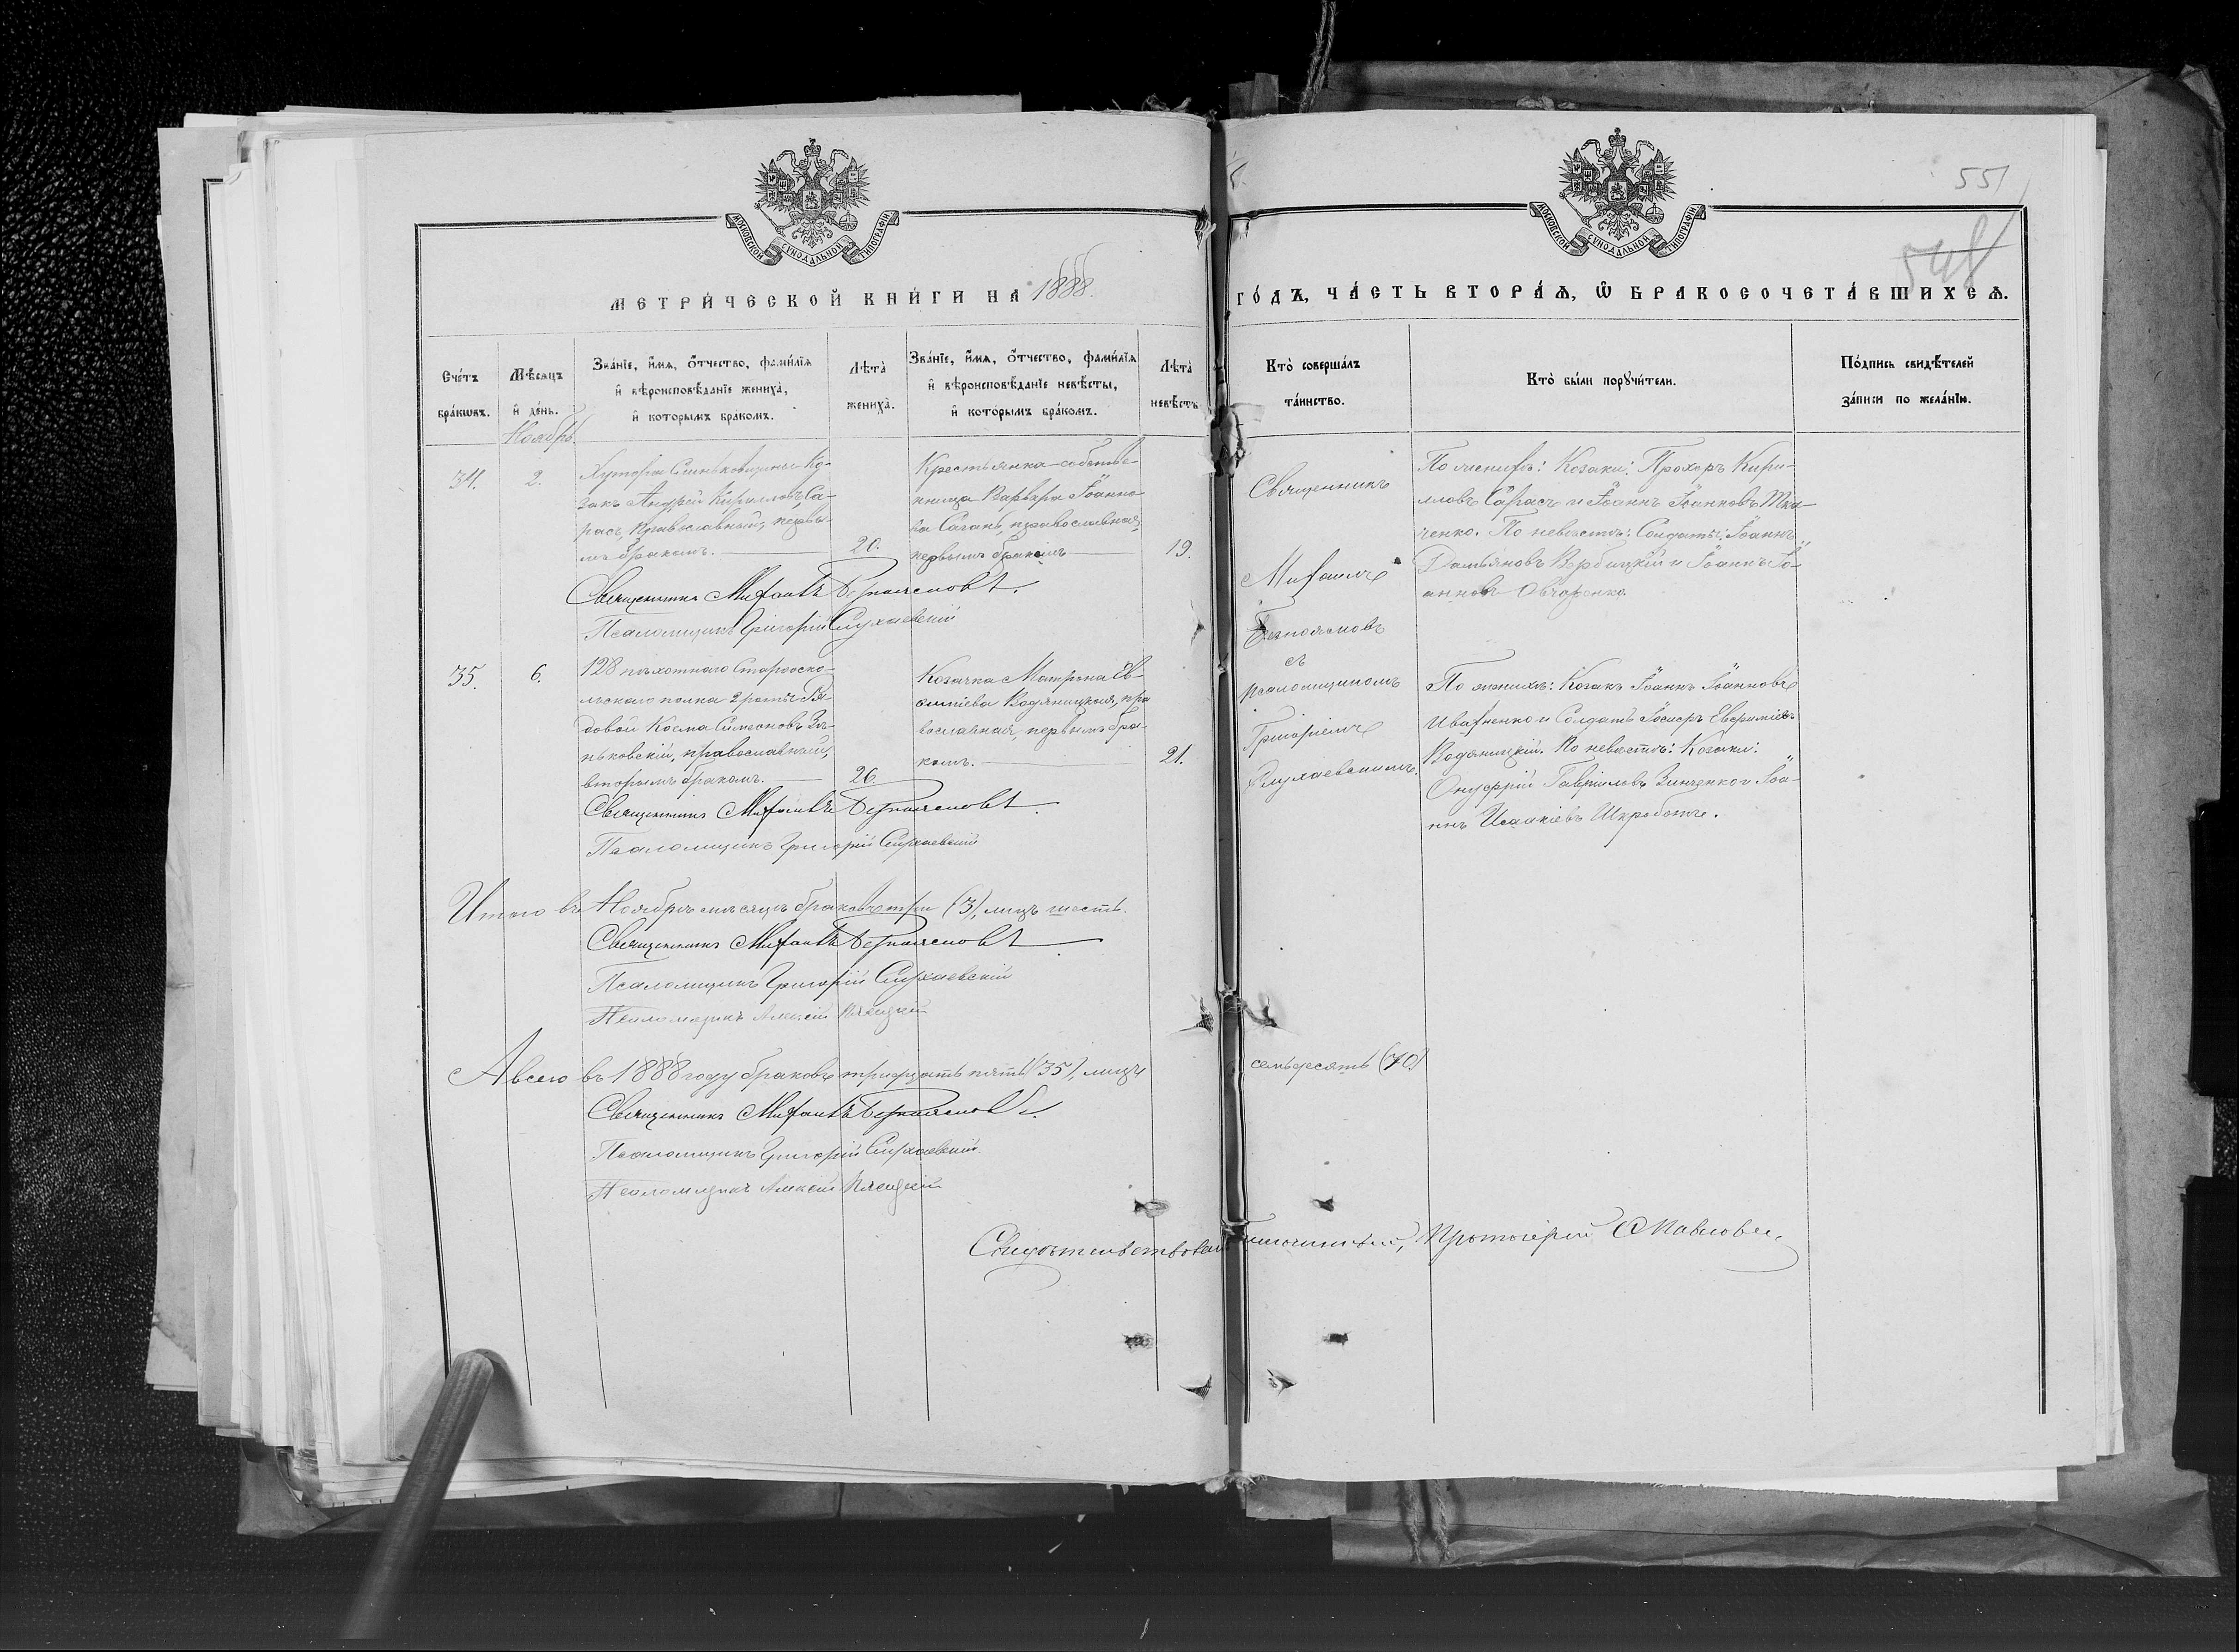 МОСКОВСКОЙ СУНОДАЛЬНОЙ ТИПОГРАФІИ
МОСКОВСКОЙ СУНОДАЛЬНОЙ ТИПОГРАФІИ
551
548
МЕТРИ́ЧЕСКОЙ КНИ́ГИ НА 1888.
ГО́ДЪ, ЧА́СТЬ ВТОРА́Ѧ, Ѽ БРАКОСОЧЕТА́ВШИХСѦ.
Сче́тъ бра́кѡвъ.
Мѣ́сѧцъ и҆ де́нь.
Зва́нїе, и҆́мѧ, ѻ҆́тчество, фами́лїѧ и҆ вѣроисповѣ́данїе жениха̀, и҆ кото́рымъ бра́комъ.
Лѣта̀ жениха̀.
Зва́нїе, и҆́мѧ, ѻ҆́тчество, фами́лїѧ и҆ вѣроисповѣ́данїе невѣ́сты, и҆ кото́рымъ бра́комъ.
Лѣта̀ невѣ́сты
Кто̀ соверша́лъ та́инство.
Кто̀ бы́ли порꙋчи́тели.
По́дпись свидѣ́телей за́писи по жела́нїю.
Ноябрь
34.
2.
Хутора Синьковщины Ко-
закъ Андрей Кирилловъ Са-
расъ, православный, первы-
мъ бракомъ.
20.
Крестьянка-собстве-
нница Варвара Іоанно-
ва Саганъ, православная,
первымъ бракомъ
19.
Священникъ
Михаилъ
Безпоясновъ
съ
псаломщикомъ
Григоріемъ
Слухаевскимъ.
По женихѣ: Козаки: Прохоръ Кири-
лловъ Сарасъ и Іоаннъ Іоанновъ Тка-
ченко. По невѣстѣ: Солдаты: Іоаннъ
Дамьяновъ Вербицкій и Іоаннъ Іо-
анновъ Овчаренко.
Священникъ Михаилъ Безпоясновъ.
Псаломщикъ Григорій Слухаевскій
35.
6.
128 пѣхотнаго Старооско-
льскаго полка 2 роты Ря-
довой Косма Симеоновъ Зѣ-
ньковскій, православный,
вторымъ бракомъ.
26.
Козачка Матрона Ев-
Водяницкая, пра
вославная, первымъ бра-
комъ.
21.
По женихѣ: Козакъ Іоаннъ Іоанновъ
Ивахненко и Солдатъ Іосифъ Евфиміевъ
Водяницкій. По невѣстѣ: Козаки:
Онуфрій Гавріиловъ Зинченко и Іоа-
ннъ Исаакіевъ Шкроботъ.
Священникъ Михаилъ Безпоясновъ.
Псаломщикъ Григорій Слухаевскій
Итого въ Ноябрѣ мѣсяцѣ браковъ три (3), лицъ шесть.
Священникъ Михаилъ Безпоясновъ
Псаломщикъ Григорій Слухаевскій
Псаломщикъ Алексій
А всего въ 1888 году браковъ тридцать пять (35), лицъ семьдесятъ (70)
Священникъ Михаилъ Безпоясновъ.
Псаломщикъ Григорій Слухаевскій.
Псаломщикъ Алексій
Протоіерей